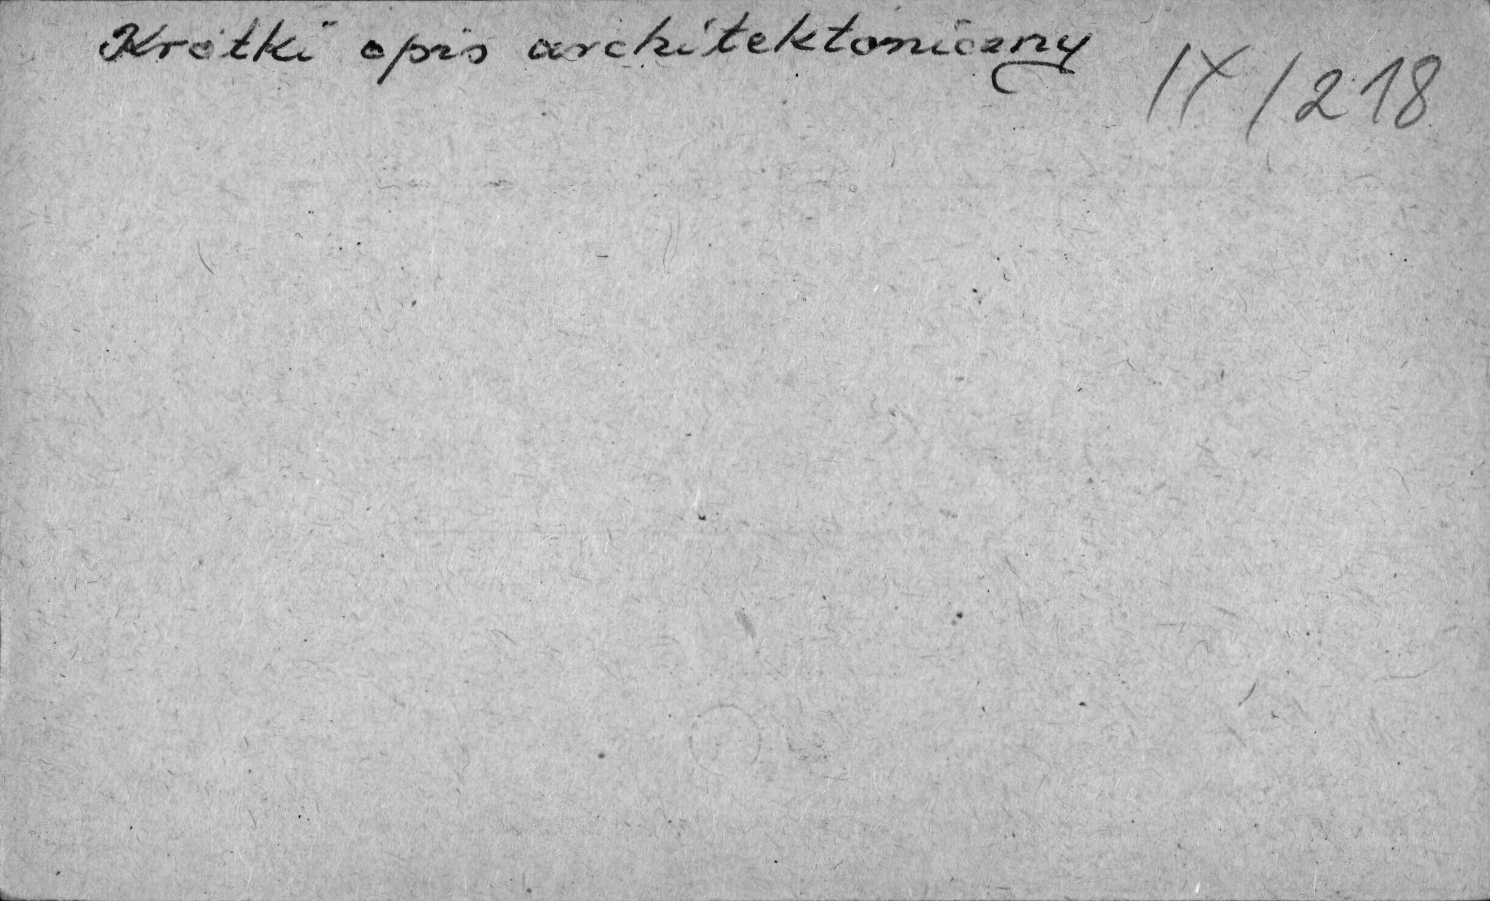 Krótki opis architektoniczny
IX/218